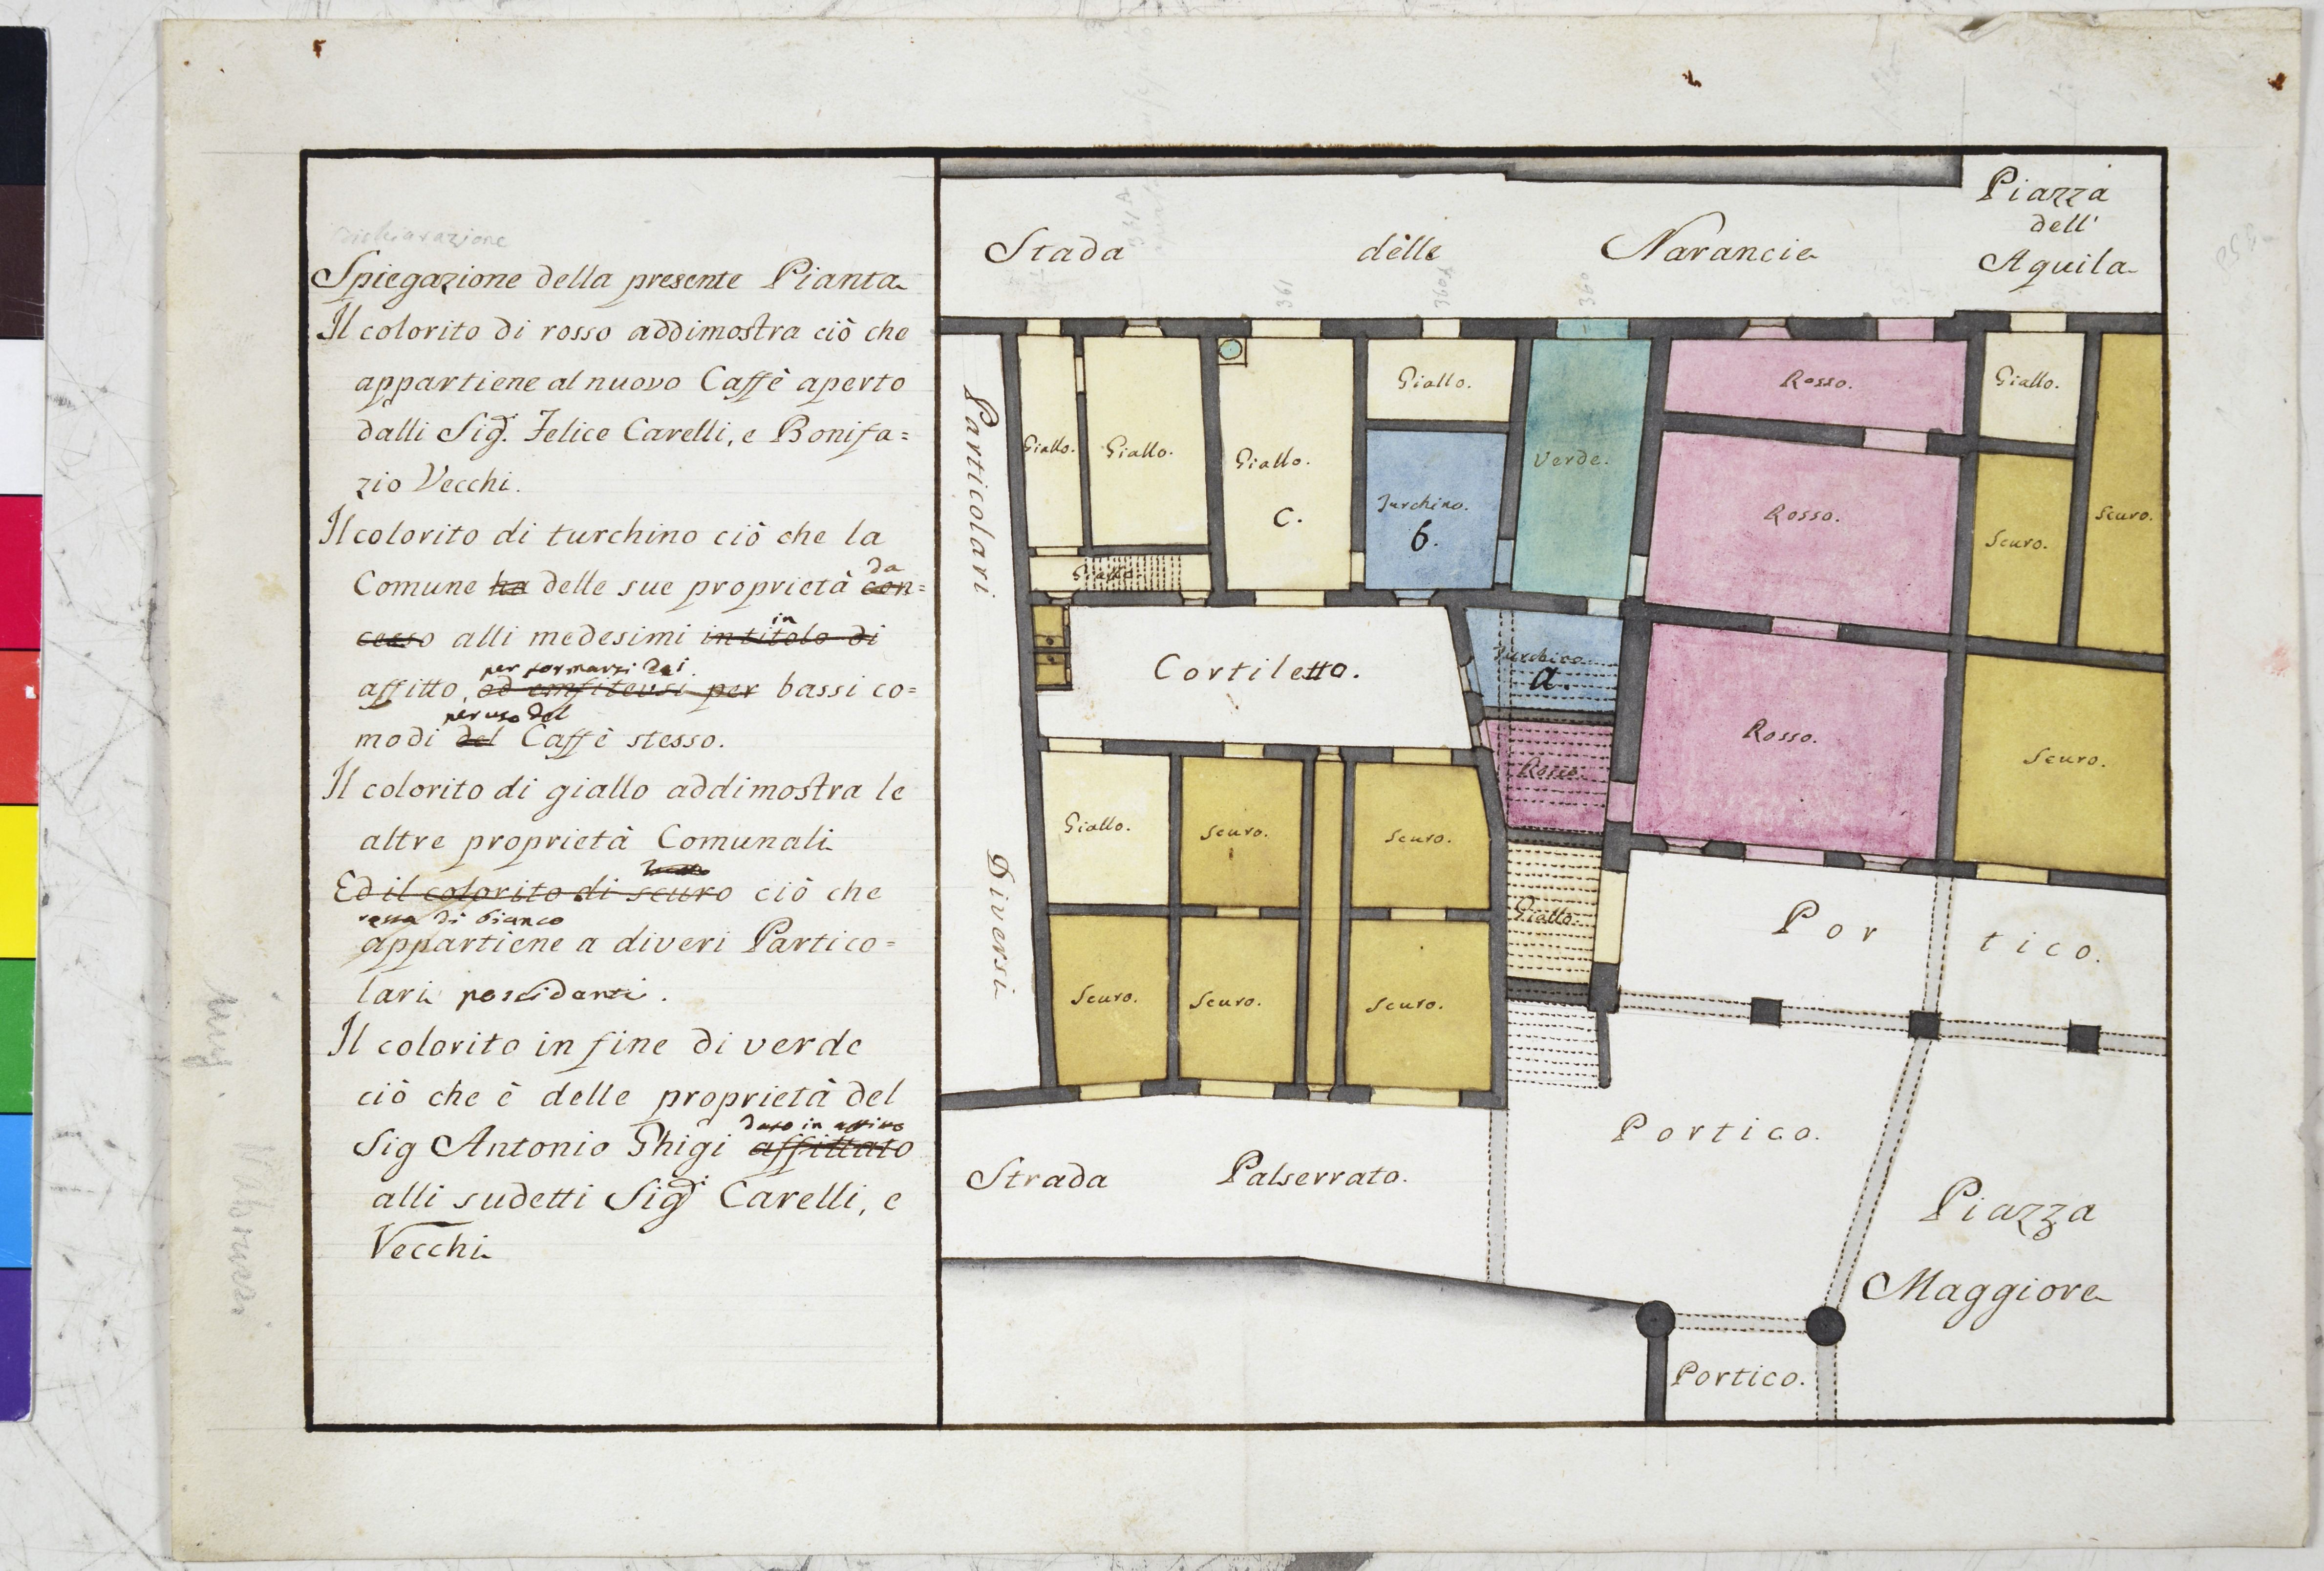 dichiarazione
Spiegazione della presente Pianta
Il colorito di rosso addimostra ciò che
appartiene al nuovo Caffè aperto
dalli Sigi. Felice Carelli, e Bonifa=
zio Vecchi.
Il colorito di turchino ciò che la
da
Comune ha delle sue proprietà con=
in
cesso alli medesimi in titolo di
per formarsi dei
affitto, ed emfiteusi per bassi co=
per uso del
modi del Caffè stesso.
Il colorito di giallo addimostra le
altre proprietà Comunali
Ed il colorito di scuro ciò che
di bianco
appartiene a diveri Partico=
lari possidenti.
Il colorito in fine di verde
ciò che è delle proprietà del
dato in affitto
Sig Antonio Ghigi affittato
alli sudetti Sigi Carelli, e
Vecchi
Stada delle Narancie
Piazza
dell'
Aquila
361
360
Particolari
Diversi
Giallo.
Giallo.
Giallo.
C.
Giallo.
Turchino.
b.
Verde.
Rosso.
Giallo.
Rosso.
Scuro.
Scuro.
Giallo
Cortiletto.
Turchino
a.
Rosso.
Rosso.
Scuro.
Giallo.
Scuro.
Scuro.
Giallo.
Portico.
Scuro.
Scuro.
Scuro.
Portico.
Strada Palserrato.
Piazza
Maggiore
Portico.